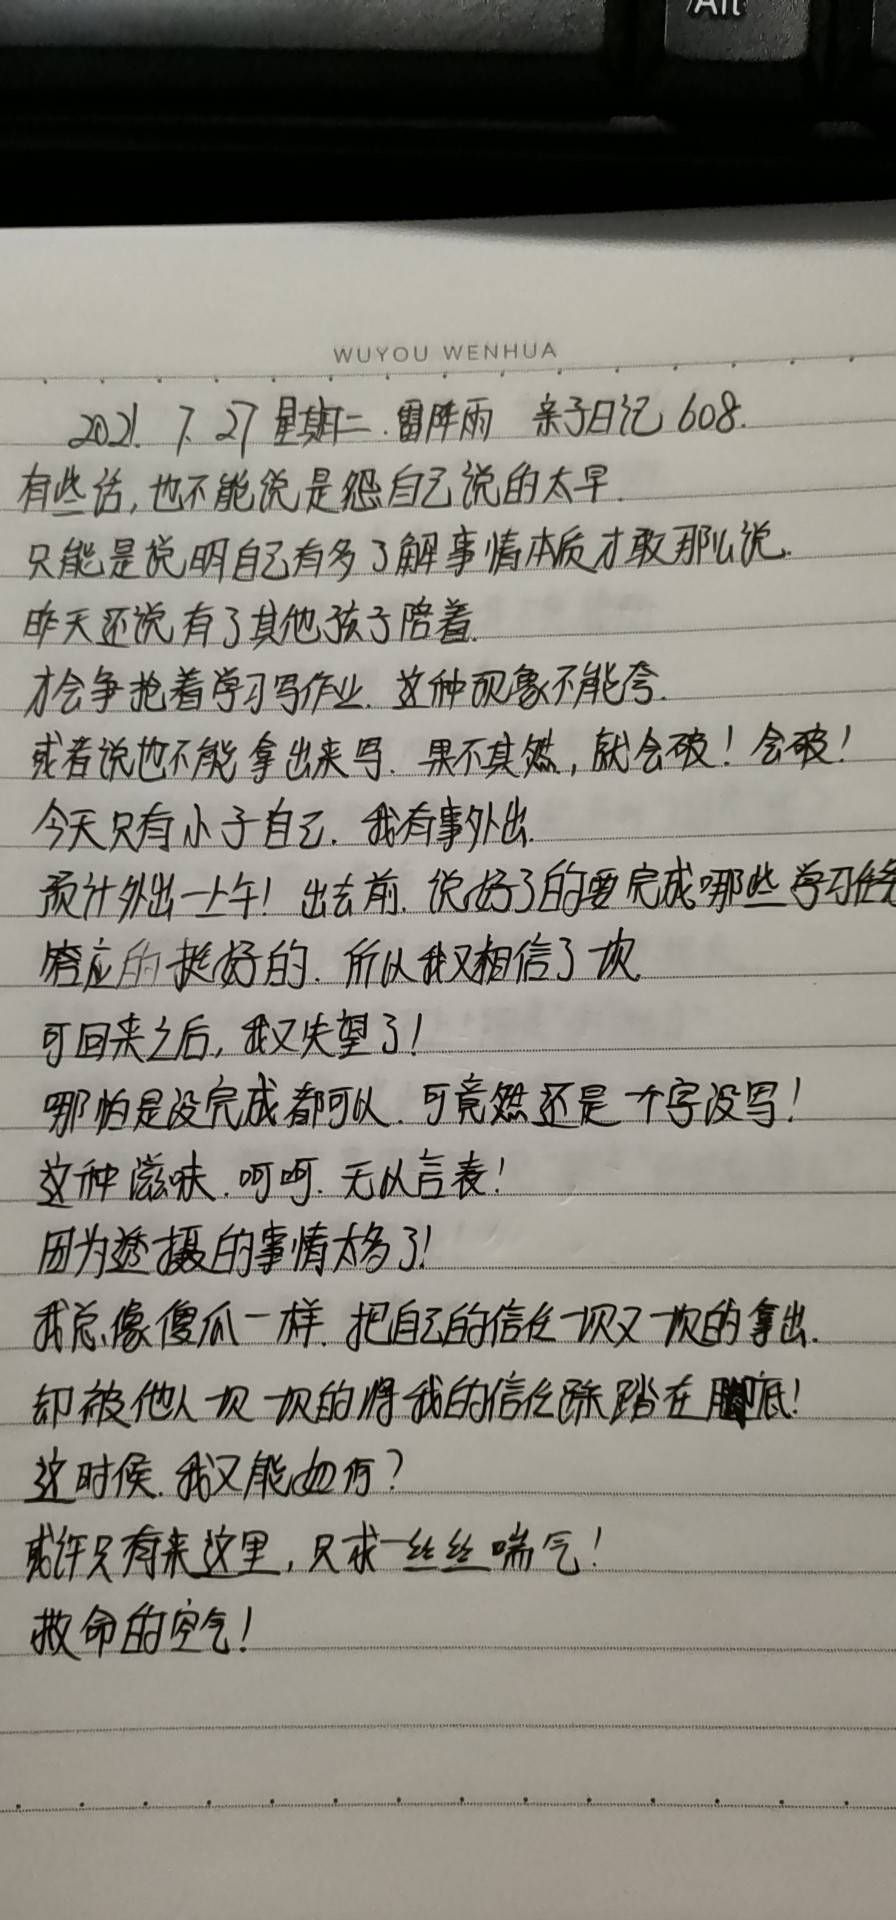 Alt
WUYOU WENHUA
2021. 7. 27 星期二. 雷阵雨 亲子日记 608.
有些话, 也不能说是怨自己说的太早.
只能是说明自己有多了解事情本质才敢那么说.
昨天还说有了其他孩子陪着.
才会争抢着学习写作业. 这种现象不能夸.
或者说也不能拿出来写. 果不其然, 就会破! 会破!
今天只有小子自己. 我有事外出.
预计外出一上午! 出去前. 说好了的要完成哪些学习任务
答应的挺好的. 所以我又相信了一次
可回来之后, 我又失望了!
哪怕是没完成都可以. 可竟然还是一个字没写!
这种滋味. 呵呵. 无以言表!
因为透摄的事情太多了!
我总像傻瓜一样. 把自己的信任一次又一次的拿出.
却被他人一次一次的将我的信任踩踏在脚底!
这时候. 我又能如何?
或许只有来这里, 只求一丝丝喘气!
救命的空气!